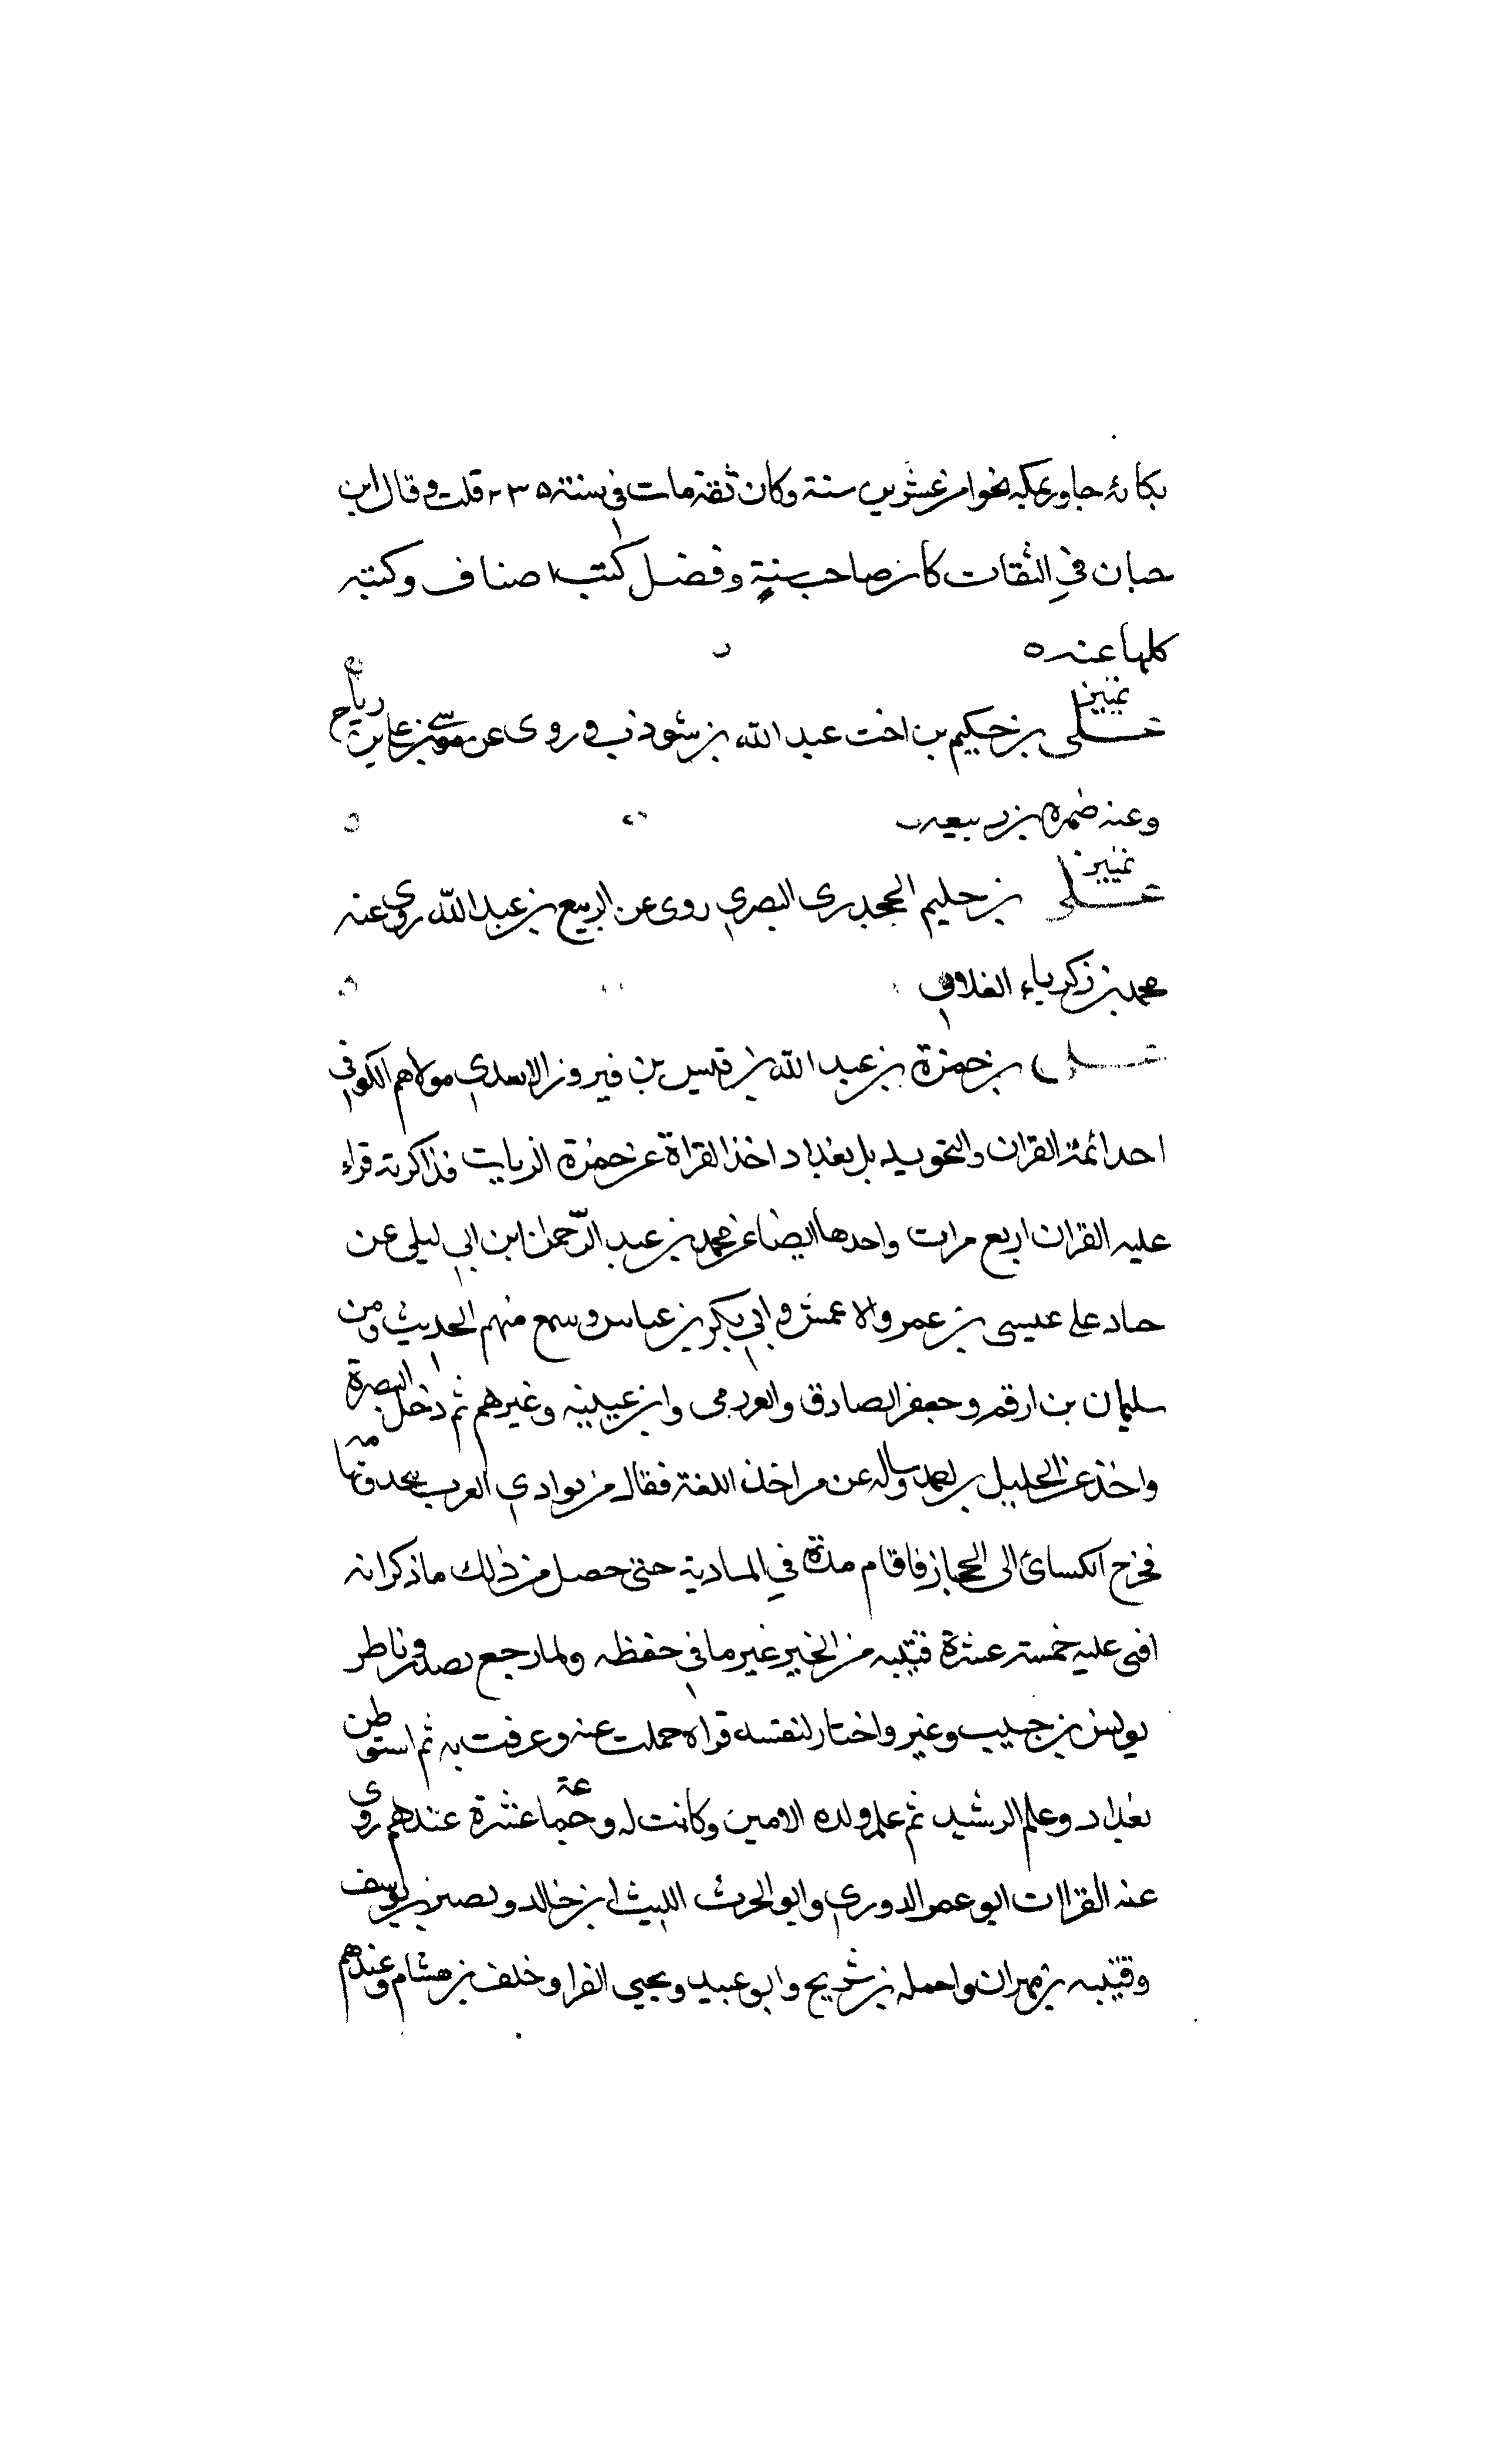 بكاية جاور بمكه نحوا من عشرين سنة وكان ثقة مات في سنة ٢٣٥ قلت وقال ابن
حبان في الثقات كان صاحب سنة وفضل كتب اصناف وكتبه
كلها عنده
تمييز علي بن حكيم بن اخت عبد الله بن شوذب روى عن موسى بن علي بن رباح
وعنه ضمره بن ربيعه
تمييز علي بن حليم الجحدري البصري روى عن الربيع بن عبد الله روى عنه
محمد بن زكرياء الغلابي
علي بن حمزة بن عبد الله بن قيس بن فيروز الاسدي مولاهم الكوفي
احد ائمة القران والتجويد بل بغداد اخذ القراة عن حمزة الزيات فذاكرته قراء
عليه القران اربع مرات واحدها ايضا عن محمد بن عبد الرحمن ابن ابي ليلى عن
حماد على عيسى بن عمر والاعمش وابي بكر بن عياس وسمع منهم الحديث ومن
سليمان بن ارقم وجعفر الصادق والعرزمي وابن عيينه وغيرهم ثم دخل البصرة
واخذ عن الخليل بن احمد وساله عن من اخذ اللغة فقال من بوادي العرب بنجد وتهامه
فخرج الكسائ الى الحجاز فاقام مدة في البادية حتى حصل من ذلك ما ذكر انه
افنى عليه خمسة عشرة قنينه من الخبر غير ما في حفظه ولما رجع تصدر وناظر
يونس بن حبيب وغير واختار لنفسه قراه حملت عنه وعرفت به ثم استوطن
بغداد وعلم الرشيد ثم علم ولده الامين وكانت له وجماعة عشرة عندهم روى
عنه القراات ابو عمر الدوري وابو الحرث الليث ابن خالد ونصير بن يوسف
وقتيبه بن مهران واحمد بن شريح وابو عبيد ويحيي الفرا وخلف بن هشام وعندهم